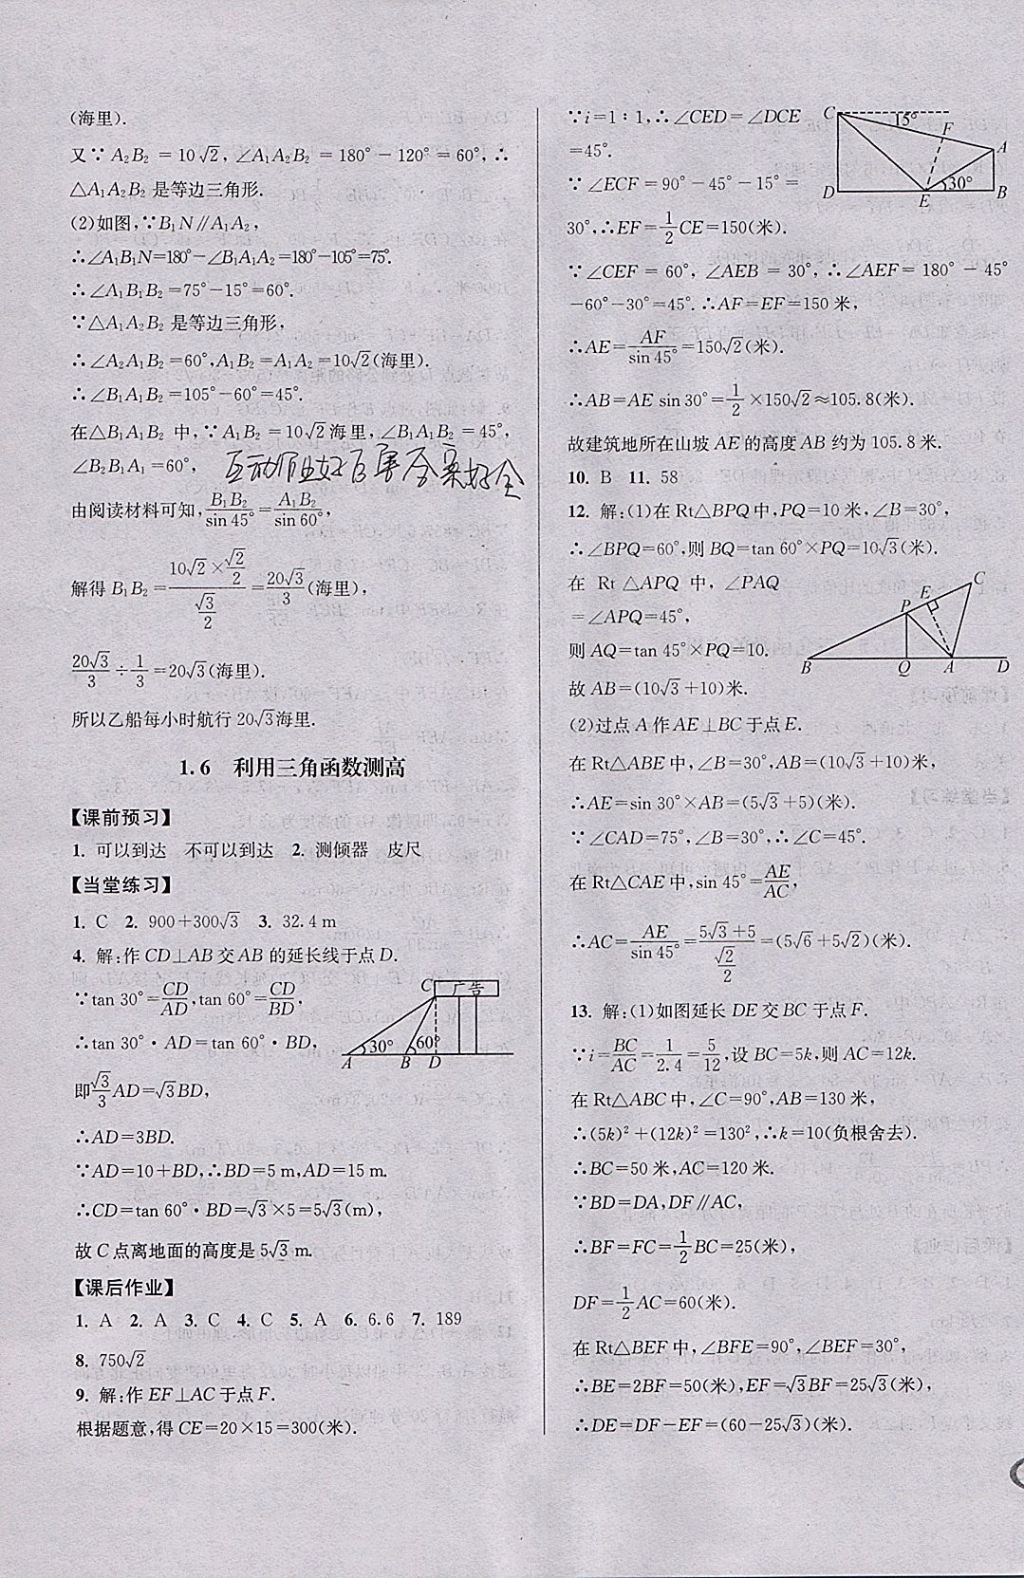 (海里).
又∵A₂B₂=10√2,∠A₁A₂B₂=180°-120°=60°,∴
△A₁A₂B₂是等边三角形.
(2)如图,∵B₁N∥A₁A₂,
∴∠A₁B₁N=180°-∠B₁A₁A₂=180°-105°=75°.
∴∠A₁B₁B₂=75°-15°=60°.
∵△A₁A₂B₂是等边三角形,
∴∠A₂A₁B₂=60°,A₁B₂=A₁A₂=10√2(海里).
∴∠B₁A₁B₂=105°-60°=45°.
在△B₁A₁B₂中,∵A₁B₂=10√2海里,∠B₁A₁B₂=45°,
∠B₂B₁A₁=60°,
互动作业好百果答案好全
由阅读材料可知,B₁B₂/sin 45°=A₁B₂/sin 60°,
解得B₁B₂=(10√2×√2/2)/(√3/2)=20√3/3(海里),
20√3/3÷1/3=20√3(海里).
所以乙船每小时航行20√3海里.
1.6 利用三角函数测高
【课前预习】
1. 可以到达 不可以到达 2. 测倾器 皮尺
【当堂练习】
1. C 2. 900+300√3 3. 32.4 m
4. 解:作CD⊥AB交AB的延长线于点D.
∵tan 30°=CD/AD,tan 60°=CD/BD,
∴tan 30°·AD=tan 60°·BD,
即√3/3AD=√3BD,
C 广告
30° 60°
A B D
∴AD=3BD.
∵AD=10+BD,∴BD=5 m,AD=15 m.
∴CD=tan 60°·BD=√3×5=5√3(m),
故C点离地面的高度是5√3 m.
【课后作业】
1. A 2. A 3. C 4. C 5. A 6. 6.6 7. 189
8. 750√2
9. 解:作EF⊥AC于点F.
根据题意,得CE=20×15=300(米).
∵i=1∶1,∴∠CED=∠DCE
=45°.
∵∠ECF=90°-45°-15°=
30°,∴EF=1/2CE=150(米).
C 15° F A
D E 30° B
∵∠CEF=60°,∠AEB=30°,∴∠AEF=180°-45°
-60°-30°=45°.∴AF=EF=150米,
∴AE=AF/sin 45°=150√2(米).
∴AB=AE sin 30°=1/2×150√2≈105.8(米).
故建筑地所在山坡AE的高度AB约为105.8米.
10. B 11. 58
12. 解:(1)在Rt△BPQ中,PQ=10米,∠B=30°,
∴∠BPQ=60°,则BQ=tan 60°×PQ=10√3(米).
在 Rt△APQ 中,∠PAQ
=∠APQ=45°,
则AQ=tan 45°×PQ=10.
故AB=(10√3+10)米.
C E P
B Q A D
(2)过点A作AE⊥BC于点E.
在Rt△ABE中,∠B=30°,
∴AE=sin 30°×AB=(5√3+5)(米).
∵∠CAD=75°,∠B=30°,∴∠C=45°.
在Rt△CAE中,sin 45°=AE/AC,
∴AC=AE/sin 45°=(5√3+5)/(√2/2)=(5√6+5√2)(米).
13. 解:(1)如图延长DE交BC于点F.
∵i=BC/AC=1/2.4=5/12,设BC=5k,则AC=12k.
在Rt△ABC中,∠C=90°,AB=130米,
∴(5k)²+(12k)²=130²,∴k=10(负根舍去).
∴BC=50米,AC=120米.
∵BD=DA,DF∥AC,
∴BF=FC=1/2BC=25(米),
DF=1/2AC=60(米).
在Rt△BEF中,∠BFE=90°,∠BEF=30°,
∴BE=2BF=50(米),EF=√3BF=25√3(米),
∴DE=DF-EF=(60-25√3)(米).